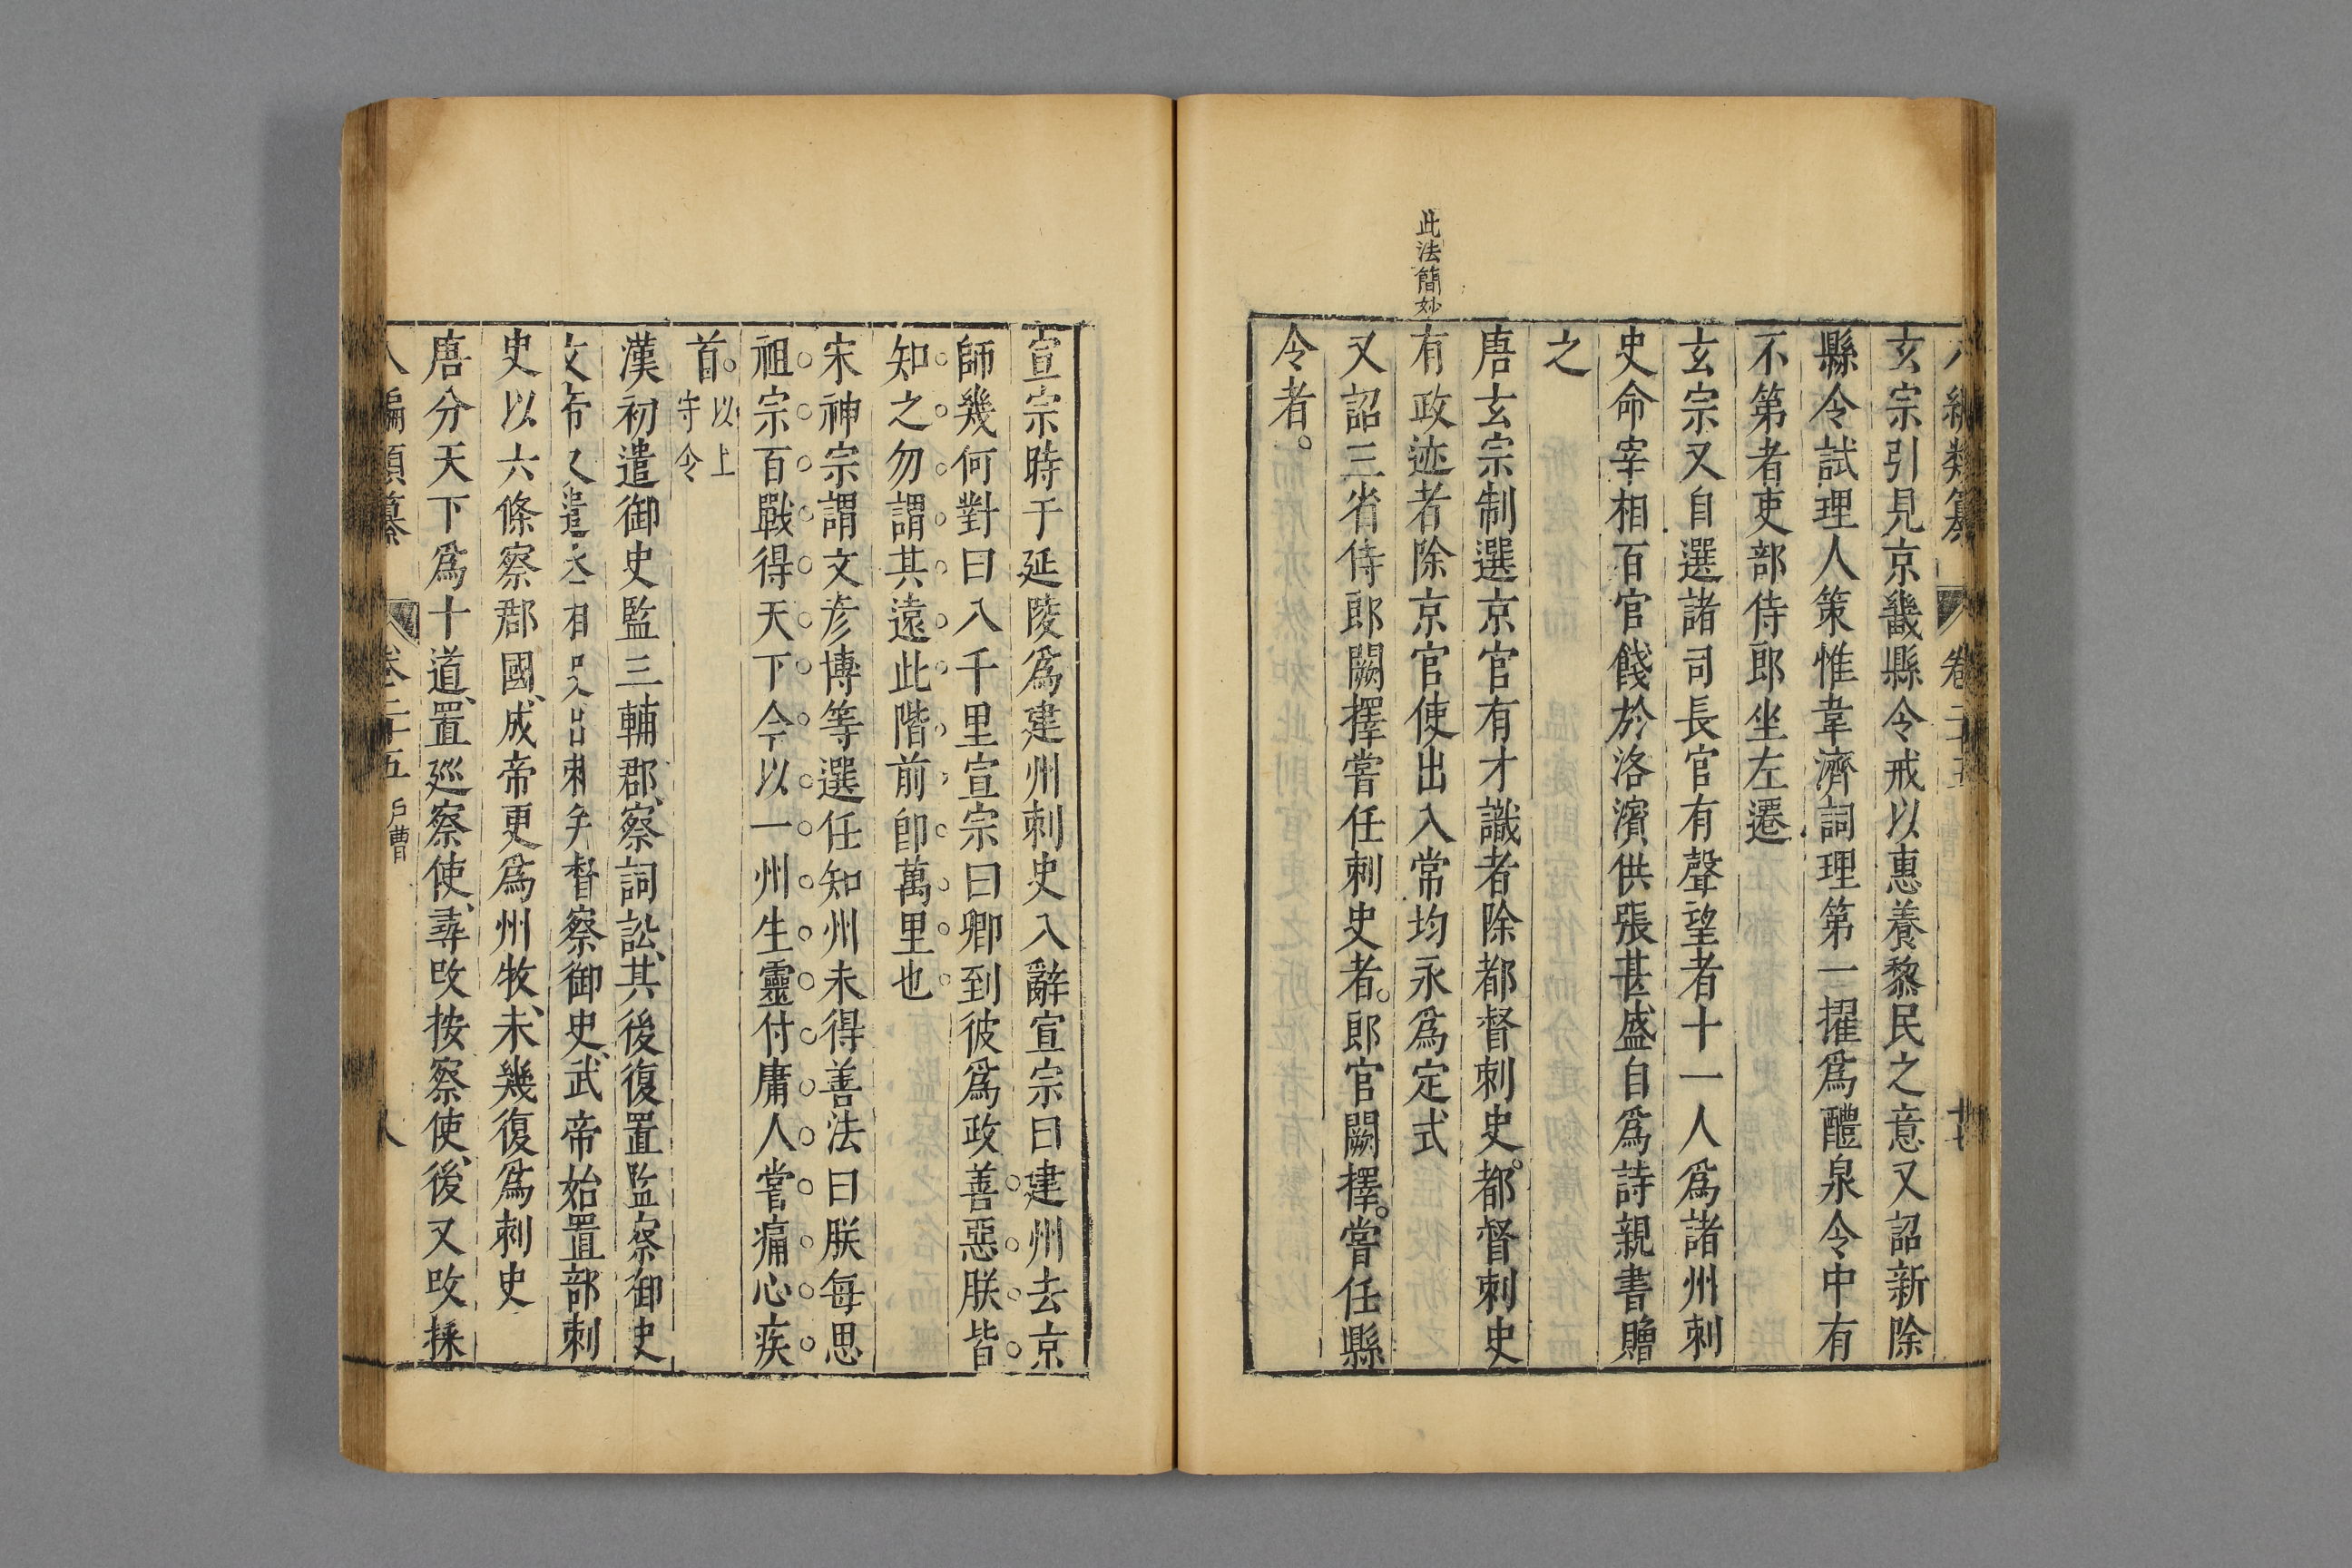 玄宗引見京畿縣令戒以惠養黎民之意又詔新除
縣令試理人策惟韋濟詞理第一擢爲醴泉令中有
不第者吏部侍郎坐左遷
玄宗又自選諸司長官有聲望者十一人爲諸州刺
史命宰相百官餞於洛濱供張甚盛自爲詩親書贈
之
唐玄宗制選京官有才識者除都督刺史。都督刺史
此法簡妙
有政迹者除京官使出入常均永爲定式
又詔三省侍郎闕擇嘗任刺史者。郎官闕擇。嘗任縣
令者。
宣宗時于延陵爲建州刺史入辭宣宗曰建州去京
師幾何對曰八千里宣宗曰卿到彼爲政善惡朕皆
知之勿謂其遠此階前卽萬里也
宋神宗謂文彦博等選任知州未得善法曰朕每思
祖宗百戰得天下今以一州生靈付庸人嘗痛心疾
首。以上守令
漢初遣御史監三輔郡、察詞訟、其後復置監察御史
文帝又遣丞相史出刺并督察御史、武帝始置部刺
史以六條察郡國、成帝更爲州牧、未幾復爲刺史
唐分天下爲十道、置廵察使、尋改按察使、後又改採
八編類纂 卷二十五 戶曹